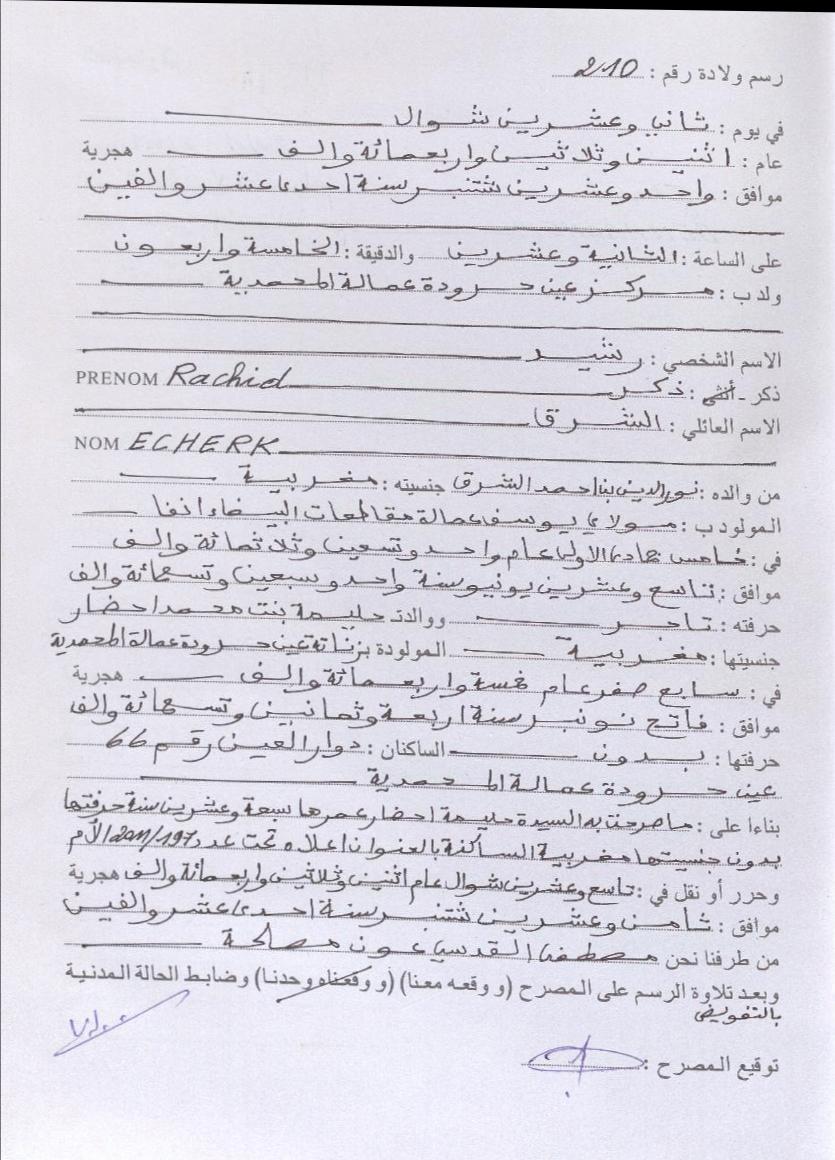 رسم ولادة رقم : 210
في يوم : ثاني وعشرين شوال
عام : اثنين وثلاثين واربعمائة والف هجرية
موافق : واحد وعشرين شتنبر سنة احدى عشر والفين
على الساعة : الثانية وعشرين والدقيقة : الخامسة واربعون
ولد ب : مركز عين حرودة عمالة المحمدية
الاسم الشخصي : رشيد
PRENOM Rachid
ذكر - أنثى : ذكر
الاسم العائلي : الشرق
NOM ECHERK
من والده : نورالدين بن احمد الشرق جنسيته : مغربية
المولود ب : مولاي يوسف عمالة مقاطعات البيضاء انفا
في : خامس جمادى الاولى عام واحد وتسعين وثلاثمائة والف
موافق : تاسع وعشرين يونيو سنة واحد وسبعين وتسعمائة والف
حرفته : تاجر ووالدته حليمة بنت محمد احضار
جنسيتها : مغربية المولودة بزناتة عين حرودة عمالة المحمدية
في : سابع صفر عام خمسة واربعمائة والف هجرية
موافق : فاتح نونبر سنة اربعة وثمانين وتسعمائة والف
حرفتها : بدون الساكنان : دوار العين رقم 66
عين حرودة عمالة المحمدية
بناءا على : ما صرحت به السيدة حليمة احضار عمرها سبعة وعشرين سنة حرفتها
بدون جنسيتها مغربية الساكنة بالعنوان اعلاه تحت عدد 2011/197 الأم
وحرر أو نقل في : تاسع وعشرين شوال عام اثنين وثلاثين واربعمائة والف هجرية
موافق : ثامن وعشرين شتنبر سنة احدى عشر والفين
من طرفنا نحن مصطفى القدسي عون مصالحة
وبعد تلاوة الرسم على المصرح (و وقعه معنا) (و وقعناه وحدنا) وضابط الحالة المدنية
بالتفويض
توقيع المصرح :